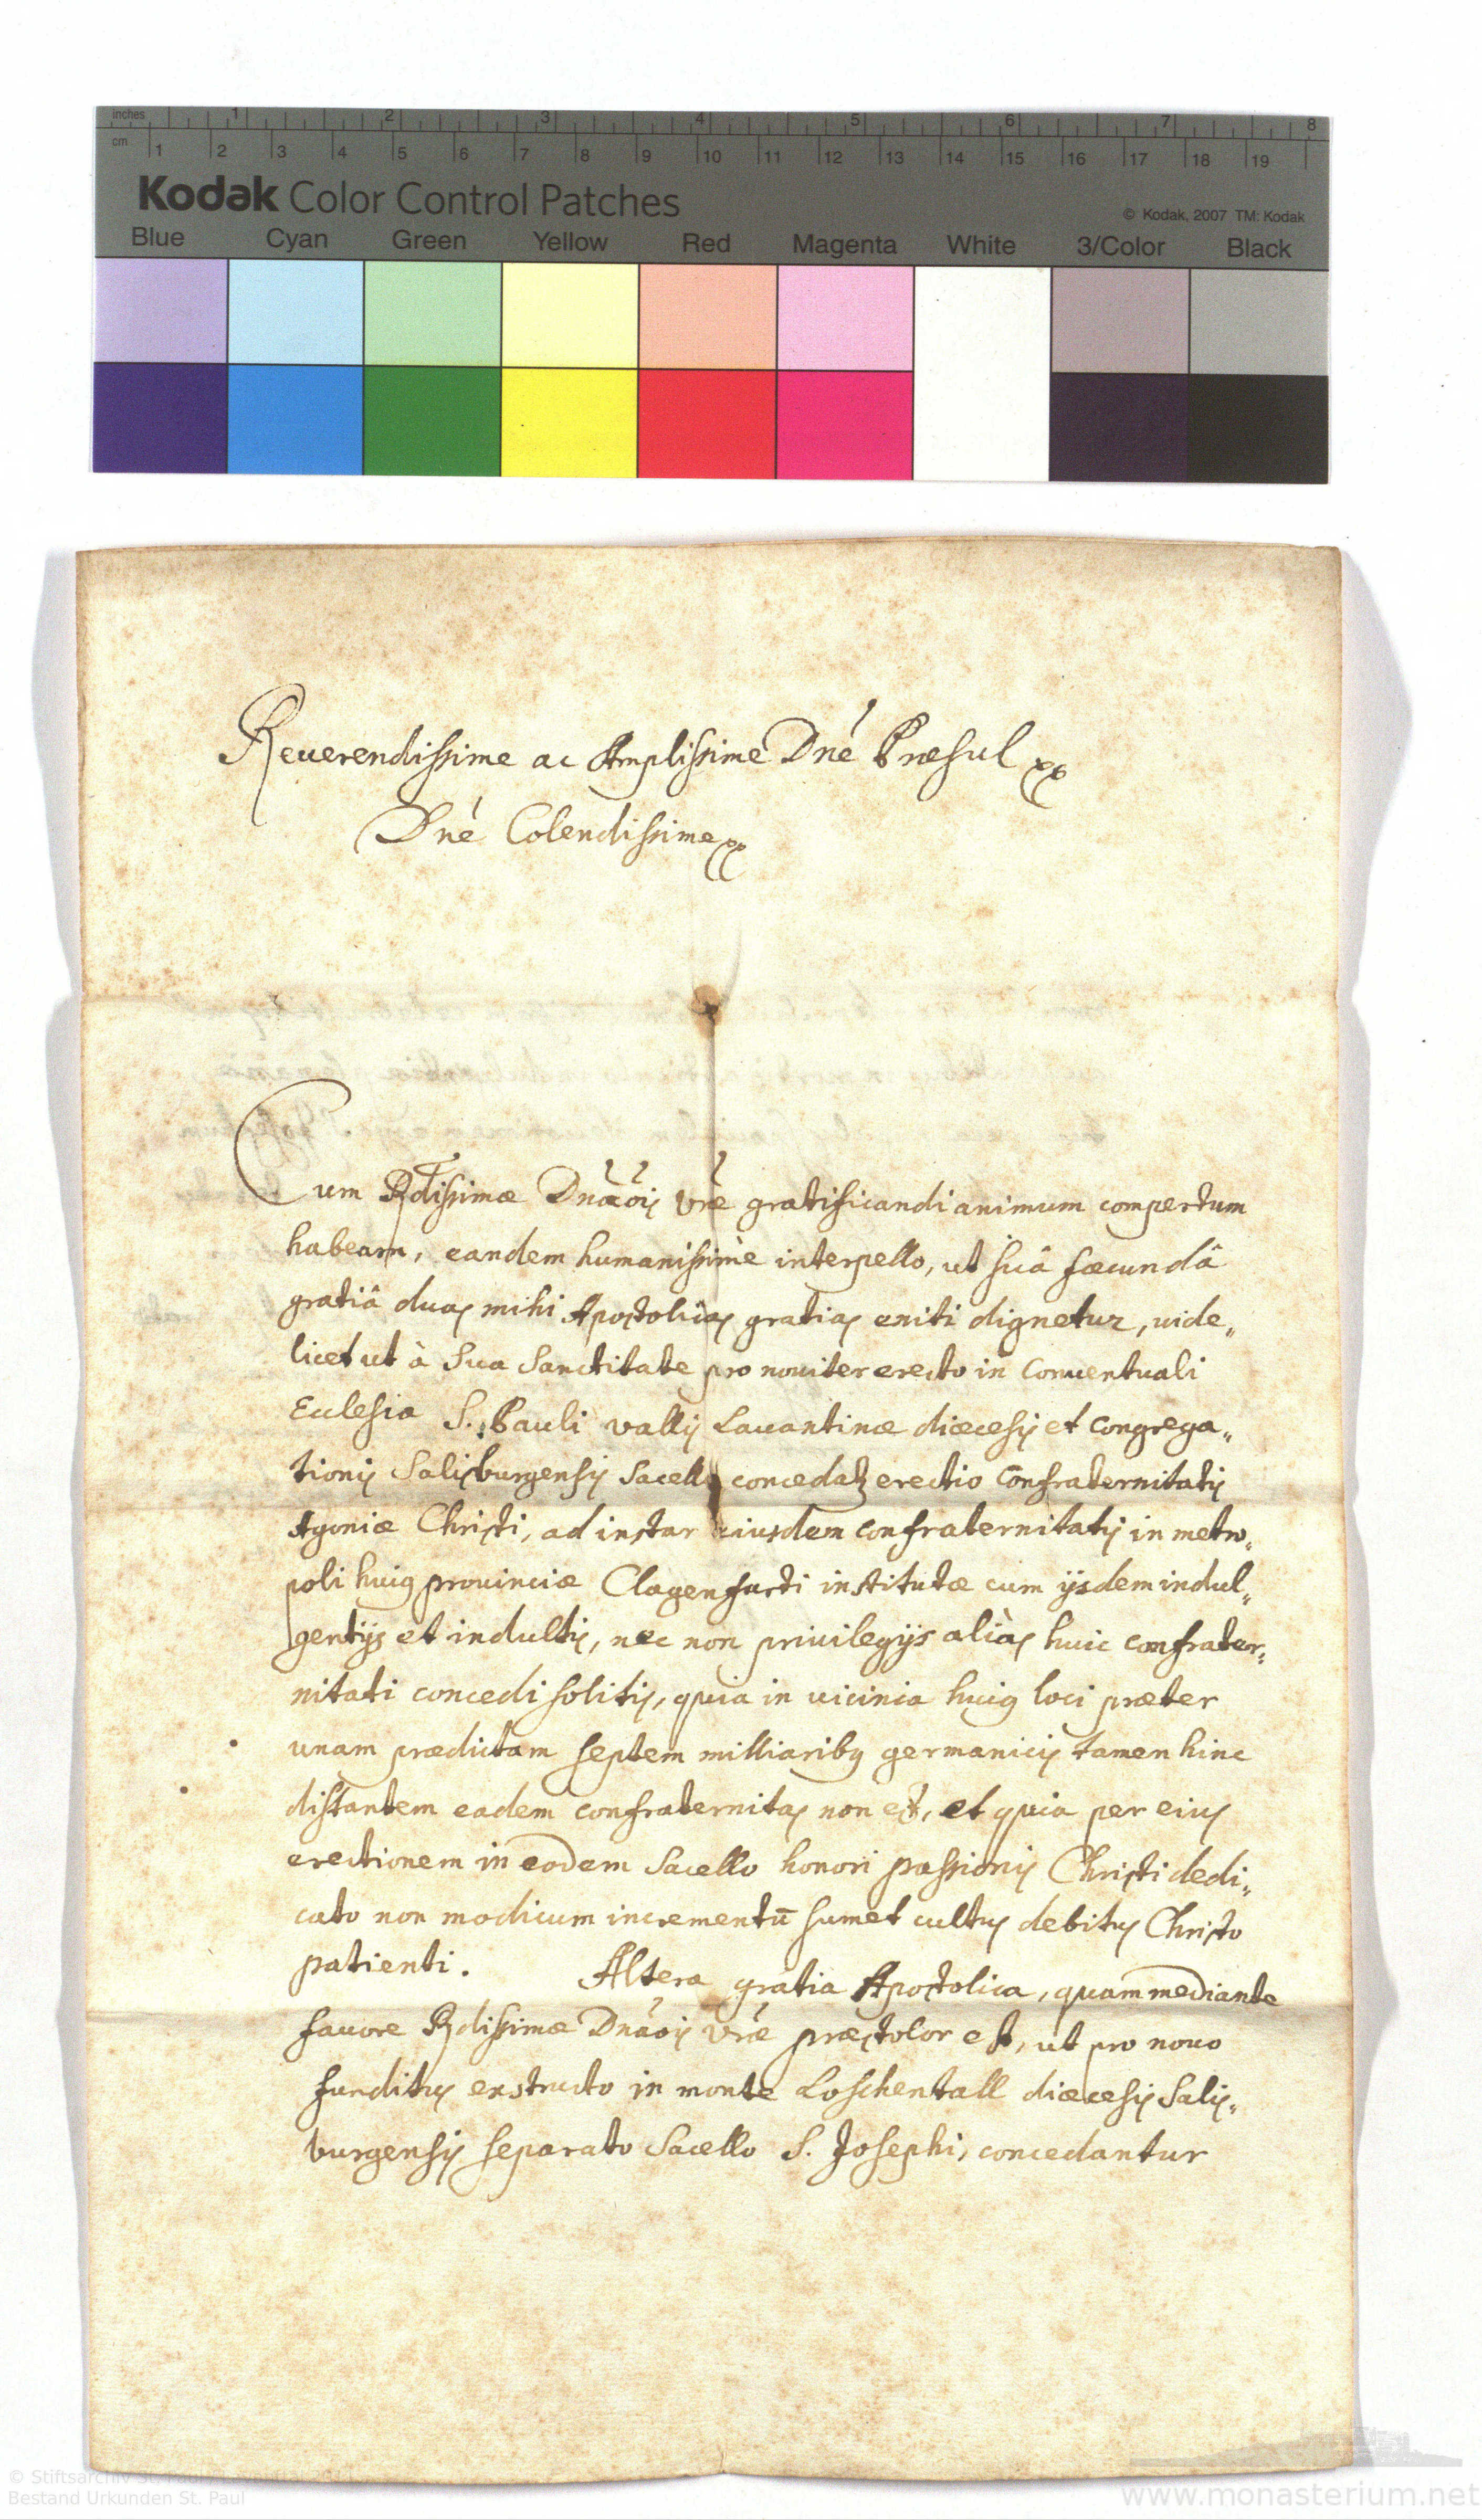 inches 1 2 3 4 5 6 7 8
cm 1 2 3 4 5 6 7 8 9 10 11 12 13 14 15 16 17 18 19
Kodak Color Control Patches
© Kodak, 2007 TM: Kodak
Blue Cyan Green Yellow Red Magenta White 3/Color Black
Reuerendissime ac Amplissime Dne Præsul
Dne Colendissime
Cum Rdissimæ Dnaois vræ gratificandi animum compertum
habeam, eandem humanissimè interpello, ut suâ fœcundâ
gratiâ duas mihi Apostolicas gratias eniti dignetur, uide„
licet ut à Sua Sanctitate pro nouiter erecto in Conuentuali
Ecclesia S. Pauli vallis Lauantinæ diœcesis et congrega„
tionis Salisburgensis Sacello concedatur erectio Confraternitatis
Agoniæ Christi, ad instar eiusdem confraternitatis in metro„
poli huius prouinciæ Clagenfurti institutæ cum ijsdem indul„
gentijs et indultis, nec non priuilegijs aliàs huic confrater„
nitati concedi solitis, quia in uicinia huius loci præter
unam prædictam septem milliaribus germanicis tamen hinc
distantem eadem confraternitas non est, et quia per eius
erectionem in eodem Sacello honori passionis Christi dedi„
cato non modicum incrementū sumet cultus debitus Christo
patienti. Altera gratia Apostolica, quam mediante
fauore Rdissimæ Dnaois vræ præstolor est, ut pro nouo
funditus exstructo in monte Loschentall diœcesis Salis„
burgensis separato Sacello S. Josephi, concedantur
© Stiftsarchiv St. Paul
Bestand Urkunden St. Paul
www.monasterium.net